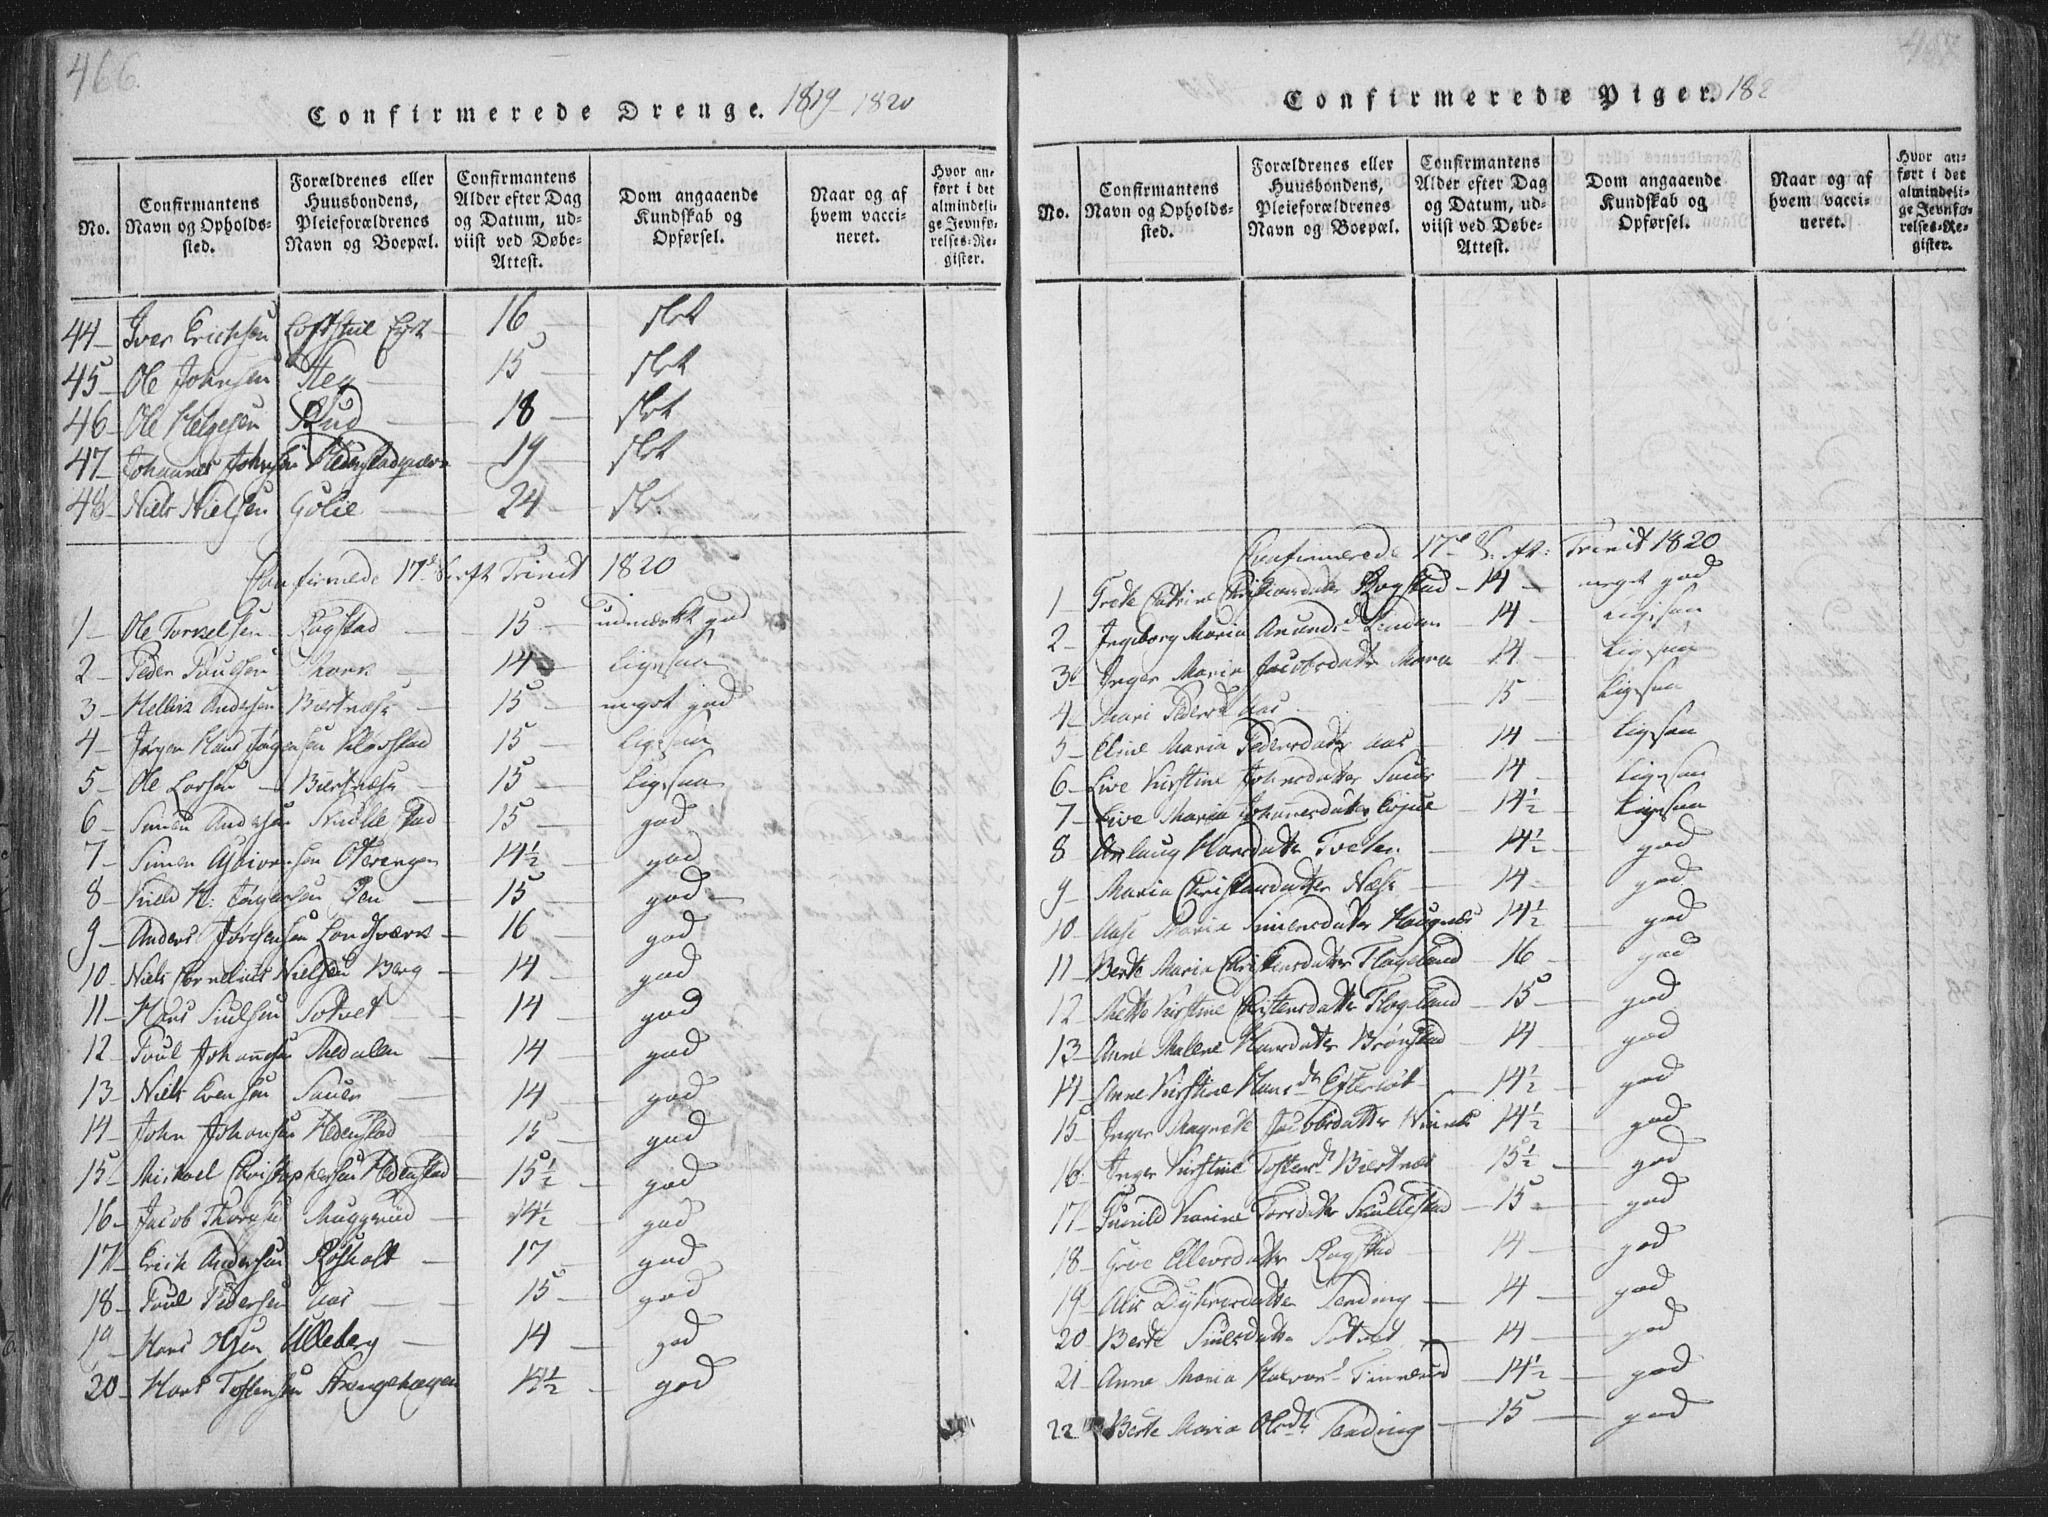 466.
Confirmerede Drenge. 1819-1820
No.
Confirmantens Navn og Opholdssted.
Forældrenes eller Huusbondens, Pleieforældrenes Navn og Boepæl.
Confirmantens Alder efter Dag og Datum, udviist ved Døbe-Attest.
Dom angaaende Kundskab og Opførsel.
Naar og af hvem vaccineret.
Hvor anført i det almindelige Jevnførelses-Register.
44 Iver Erichsen 16 slet
45 Ole Johnsen Steg 15 slet
46 Ole Helgesen Rud 18 slet
47 Johannes Johnsen 19 slet
48 Niels Nielsen Golie 24 sl.
17 Trinit 1820
1 Ole Torkelsen Rogstad 15 udmærket god
2 Peder Poulsen 14 ligesaa
3 Hellik Andersen Biertnæs 15 meget god
4 Jørgen Hans Jørgensen 15 ligesaa
5 Ole Larsen Biertnæs 15 ligesaa
6 Simen Andersen Skullestad 15 god
7 Simen Oterengen 14½ god
8 15 god
9 Anders Jørgensen Landsværk 16 god
10 Niels Cornelius Nielsen Berg 14 god
11 Hans Siulsen Sotvet 14 god
12 Poul Johannesen Medalen 14 god
13 Niels Evensen Sauer 14 god
14 John Johansen Hedenstad 15 god
15 Michael Christophersen Hedenstad 15½ god
16 Jacob Muggerud 14½ god
17 Erich Andersen Røsholt 17 god
18 Poul Pedersen Aas 15 god
19 Hans Olsen Ulleberg 14 god
20 Hans Tostensen Strengehagen 14½ god
Confirmerede Piger. 182
No.
Confirmantens Navn og Opholdssted.
Forældrenes eller Huusbondens, Pleieforældrenes Navn og Boepæl.
Confirmantens Alder efter Dag og Datum, udviist ved Døbe-Attest.
Dom angaaende Kundskab og Opførsel.
Naar og af hvem vaccineret.
Hvor anført i det almindelige Jevnførelses-Register.
Confirmerede 17de S. eft: Trinit 1820
1 Catrine Rogstad 14 meget god
2 Ingeborg Maria 14 ligesaa
3 Inger Maria Jacobsdatter 14 ligesaa
4 Mari Aas 15 ligesaa
5 Eline Maria Pedersdatter Aas 14 ligesaa
6 Live Kirstine Johnsdatter Sauer 14 ligesaa
7 Live Maria Johannesdatter Evjue 14½ ligesaa
8 Anlaug Hansdatter Tveten 14½ god
9 Maria Christensdatter Næss 14 god
10 Aase Maria Simensdatter 14½ god
11 Berte Maria Christensdatter Flageland 16 god
12 Mette Kirstine Christensdatter Flagland 15 god
13 Anne Malene Hansdatter Brønstad 14 god
14 Anne Kirstine Hansdt Efteløt 14½ god
15 Inger Magrete Jacobsdatter 14½ god
16 Inger Kirstine Tostensdt Biertnæs 15½ god
17 Gunild Karine Skullestad 15 god
18 Rogstad 14 god
19 Tanding 14 god
20 Berte Siulsdatter Sotvet 14 god
21 Anne Maria 14½ god
22 Berte Maria Olsdt Tanding 15 god